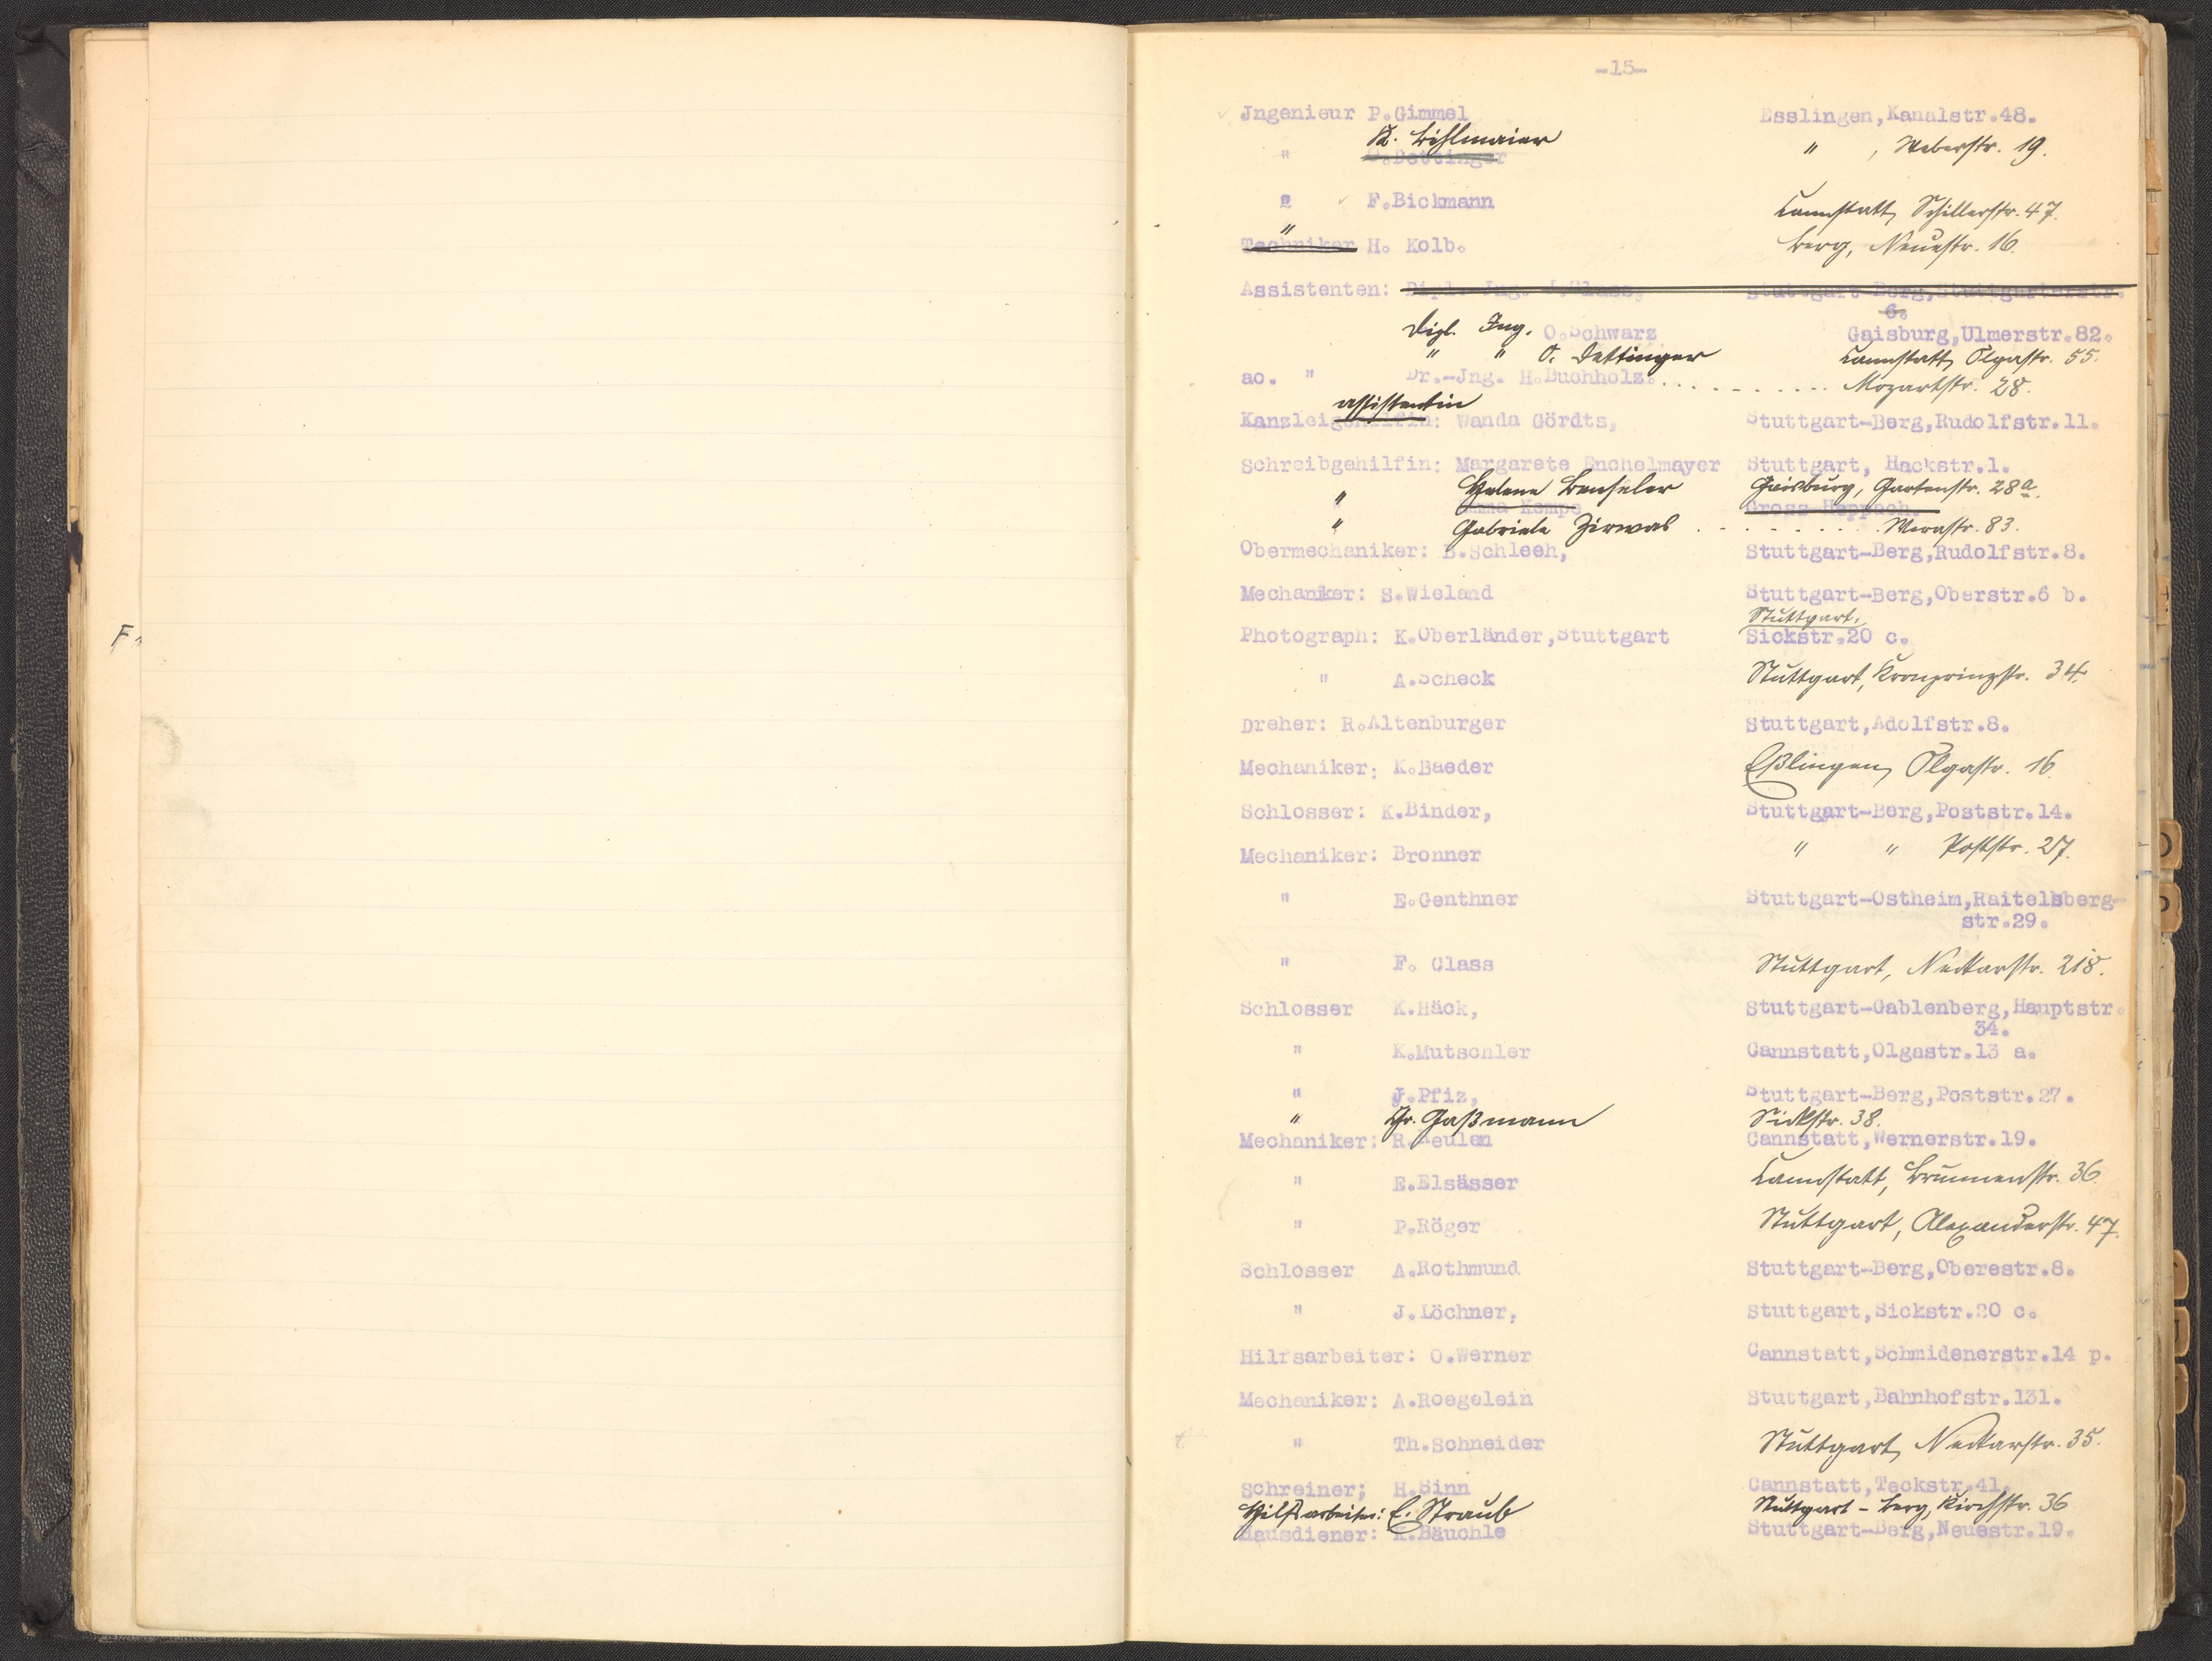 F.
-15-
Jngenieur P.Gimmel Esslingen,Kanalstr.48.
K. Bihlmaier " , Weberstr. 19.
" O.Dettinger
" F.Bickmann Cannstatt, Schillerstr. 47.
"
Techniker H. Kolb. Berg, Neuestr. 16.
Assistenten: Dipl.-Jng. Stuttgart-Berg,Stuttgarterstr.
6.
Dipl. Ing. O.Schwarz Gaisburg,Ulmerstr.82.
" " O. Dettinger Cannstatt, Olgastr. 55.
ao. " Dr.-Jng. H.Buchholz. . . . . . . . . . . Mozartstr. 28.
assistentin
Kanzleigehilfin: Wanda Gördts, Stuttgart-Berg,Rudolfstr.11.
Schreibgehilfin: Margarete Enchelmayer Stuttgart, Hackstr.1.
" Helene Benseler Gaisburg, Gartenstr. 28a.
Kempe Gross-Heppach.
" Gabriele Zirwas . . . . . . . . Werastr. 83.
Obermechaniker: B.Schleeh, Stuttgart-Berg,Rudolfstr.8.
Mechaniker: S.Wieland Stuttgart-Berg,Oberstr.6 b.
Stuttgart,
Photograph: K.Oberländer,Stuttgart Sickstr.20 c.
" A.Scheck Stuttgart, Kronprinzstr. 34.
Dreher: R.Altenburger Stuttgart,Adolfstr.8.
Mechaniker: K.Baeder Eßlingen, Olgastr. 16.
Schlosser: K.Binder, Stuttgart-Berg,Poststr.14.
Mechaniker: Bronner " " Poststr. 27.
" E.Genthner Stuttgart-Ostheim,Raitelsberg-
str.29.
" F. Class Stuttgart, Neckarstr. 218.
Schlosser K.Häck, Stuttgart-Gablenberg,Hauptstr.
34.
" K.Mutschler Cannstatt,Olgastr.13 a.
" J.Pfiz, Stuttgart-Berg,Poststr.27.
" Fr. Gaßmann Sickstr. 38.
Mechaniker: R.Keulen Cannstatt,Wernerstr.19.
" E.Elsässer Cannstatt, Brunnenstr. 36.
" P.Röger Stuttgart, Alexanderstr. 47.
Schlosser A.Rothmund Stuttgart-Berg,Oberestr.8.
" J.Löchner, Stuttgart,Sickstr.20 c.
Hilfsarbeiter: O.Werner Cannstatt,Schmidenerstr.14 p.
Mechaniker: A.Roegelein Stuttgart,Bahnhofstr.131.
" Th.Schneider Stuttgart, Neckarstr. 35.
Schreiner; H.Sinn Cannstatt,Teckstr.41.
Hilfsarbeiter: E. Straub Stuttgart - Berg, Kirchstr. 36
Hausdiener: K.Bäuchle Stuttgart-Berg,Neuestr.19.